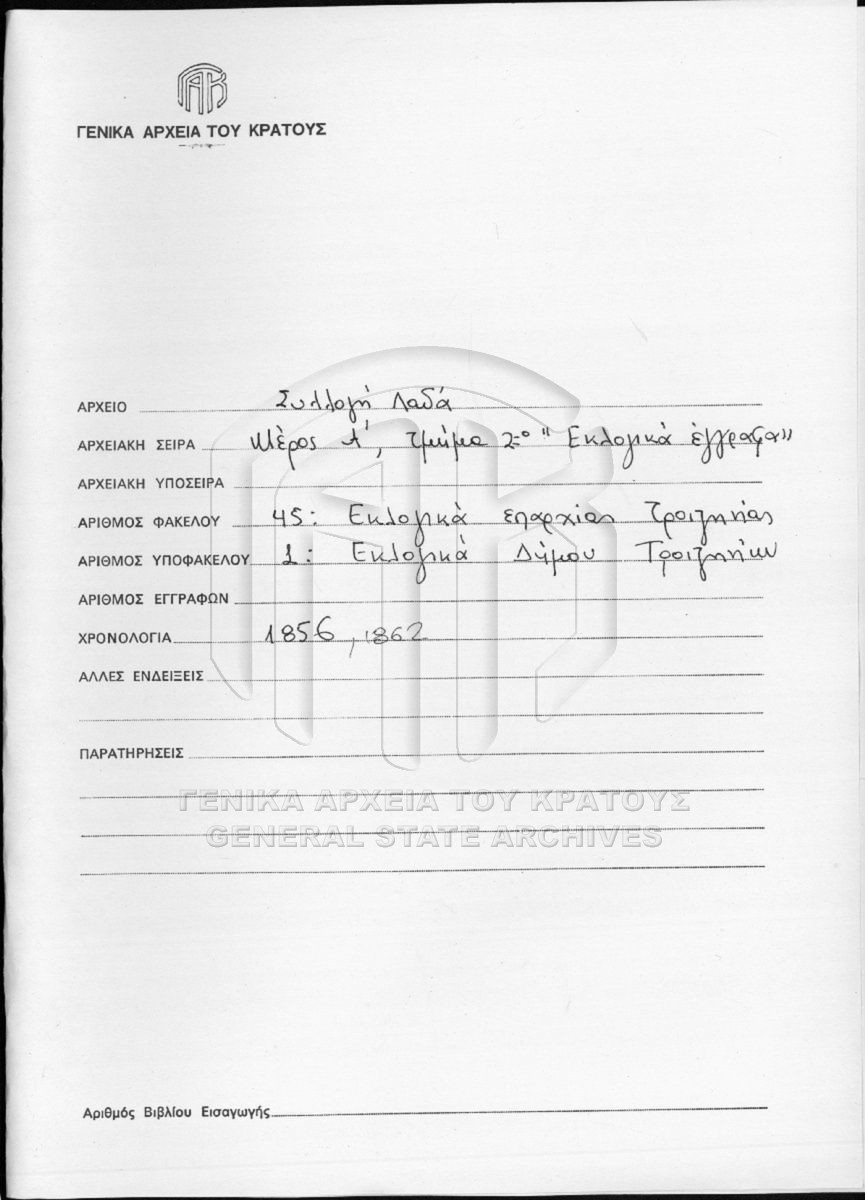 ΓΑΚ
ΓΕΝΙΚΑ ΑΡΧΕΙΑ ΤΟΥ ΚΡΑΤΟΥΣ
ΑΡΧΕΙΟ Συλλογή Λαδά
ΑΡΧΕΙΑΚΗ ΣΕΙΡΑ Μέρος Α', τμήμα 2ο "Εκλογικά έγγραφα"
ΑΡΧΕΙΑΚΗ ΥΠΟΣΕΙΡΑ
ΑΡΙΘΜΟΣ ΦΑΚΕΛΟΥ 45: Εκλογικά επαρχίας Τροιζηνίας
ΑΡΙΘΜΟΣ ΥΠΟΦΑΚΕΛΟΥ 1: Εκλογικά Δήμου Τροιζηνίων
ΑΡΙΘΜΟΣ ΕΓΓΡΑΦΩΝ
ΧΡΟΝΟΛΟΓΙΑ 1856, 1862
ΑΛΛΕΣ ΕΝΔΕΙΞΕΙΣ
ΠΑΡΑΤΗΡΗΣΕΙΣ
ΓΕΝΙΚΑ ΑΡΧΕΙΑ ΤΟΥ ΚΡΑΤΟΥΣ
GENERAL STATE ARCHIVES
Αριθμός Βιβλίου Εισαγωγής